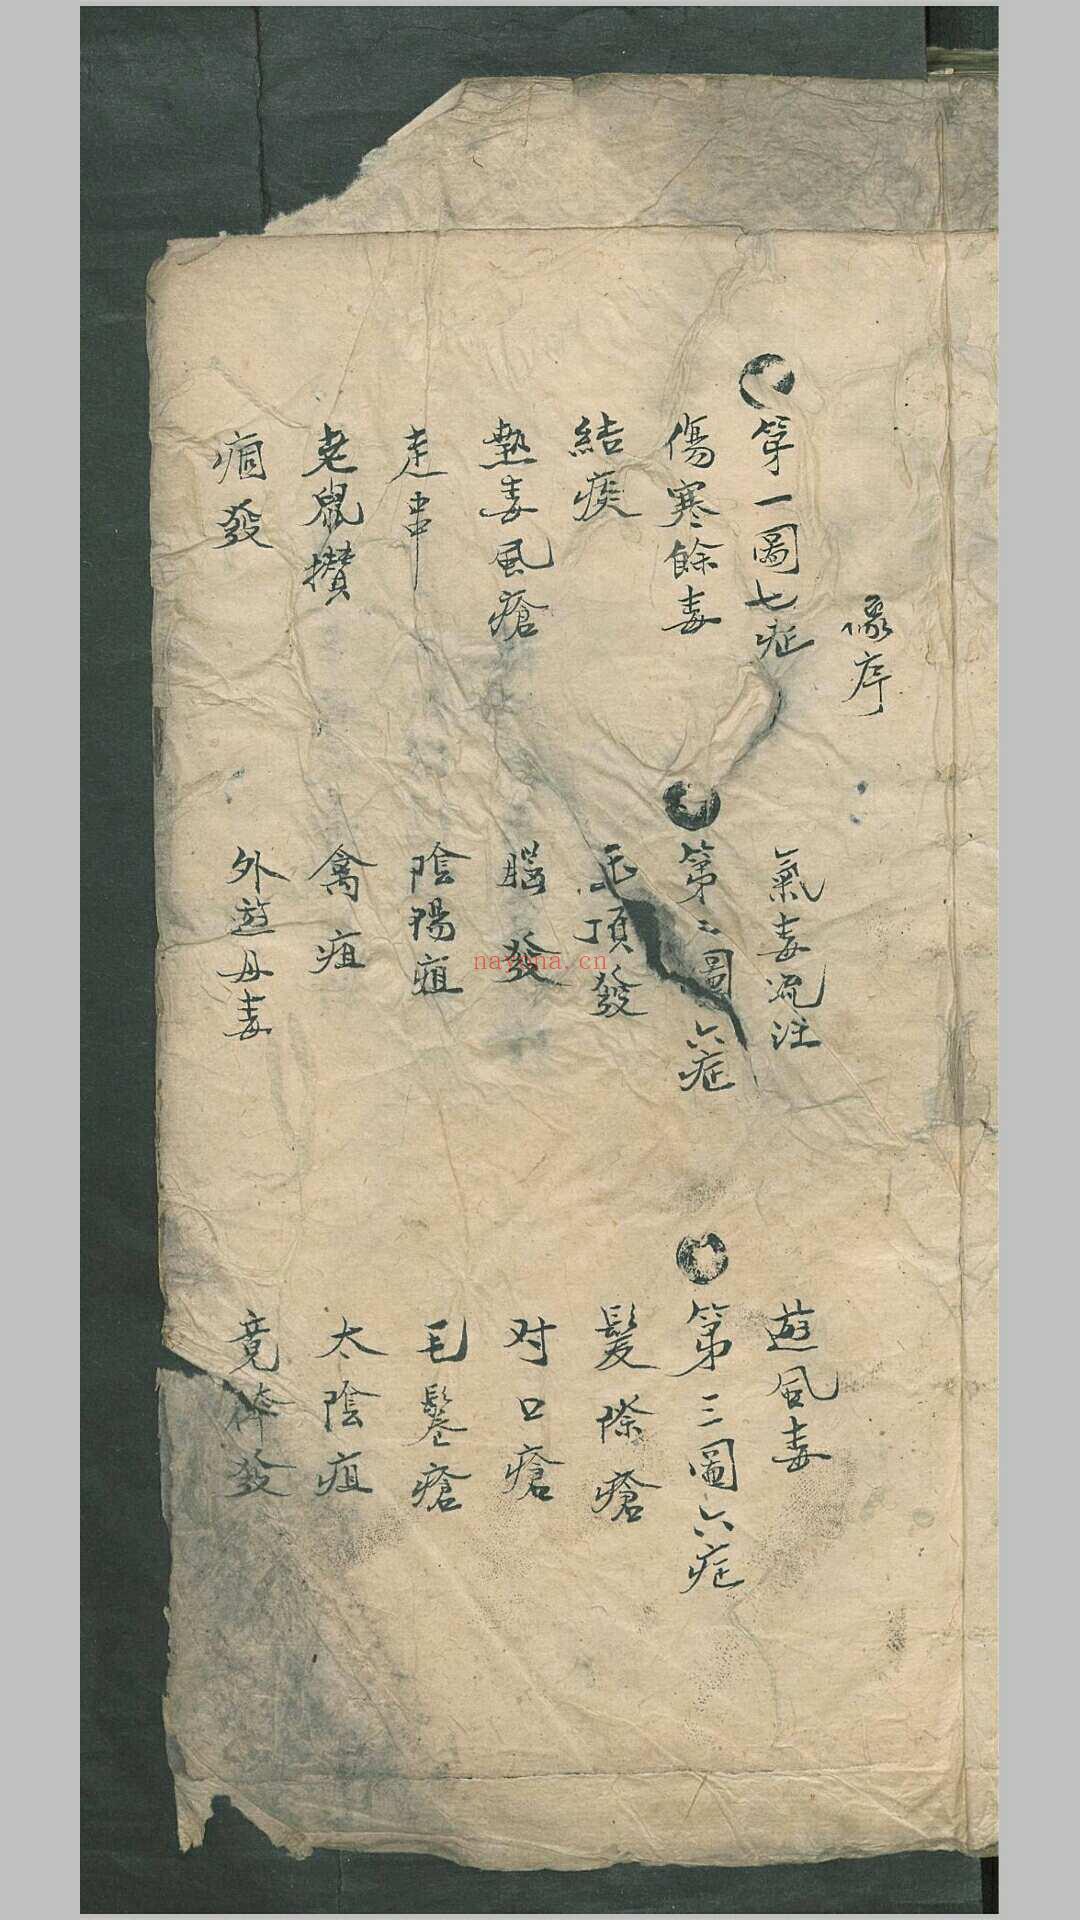 像序
第一圖七症
傷寒餘毒
結痰
熱毒風瘡
走串
老鼠攢
痼發
氣毒流注
第二圖六症
玉頂發
腦發
陰陽疽
禽疽
外遊丹毒
遊風毒
第三圖六症
髮際瘡
对口瘡
毛鬈瘡
太陰疽
竟体發
nayona.cn